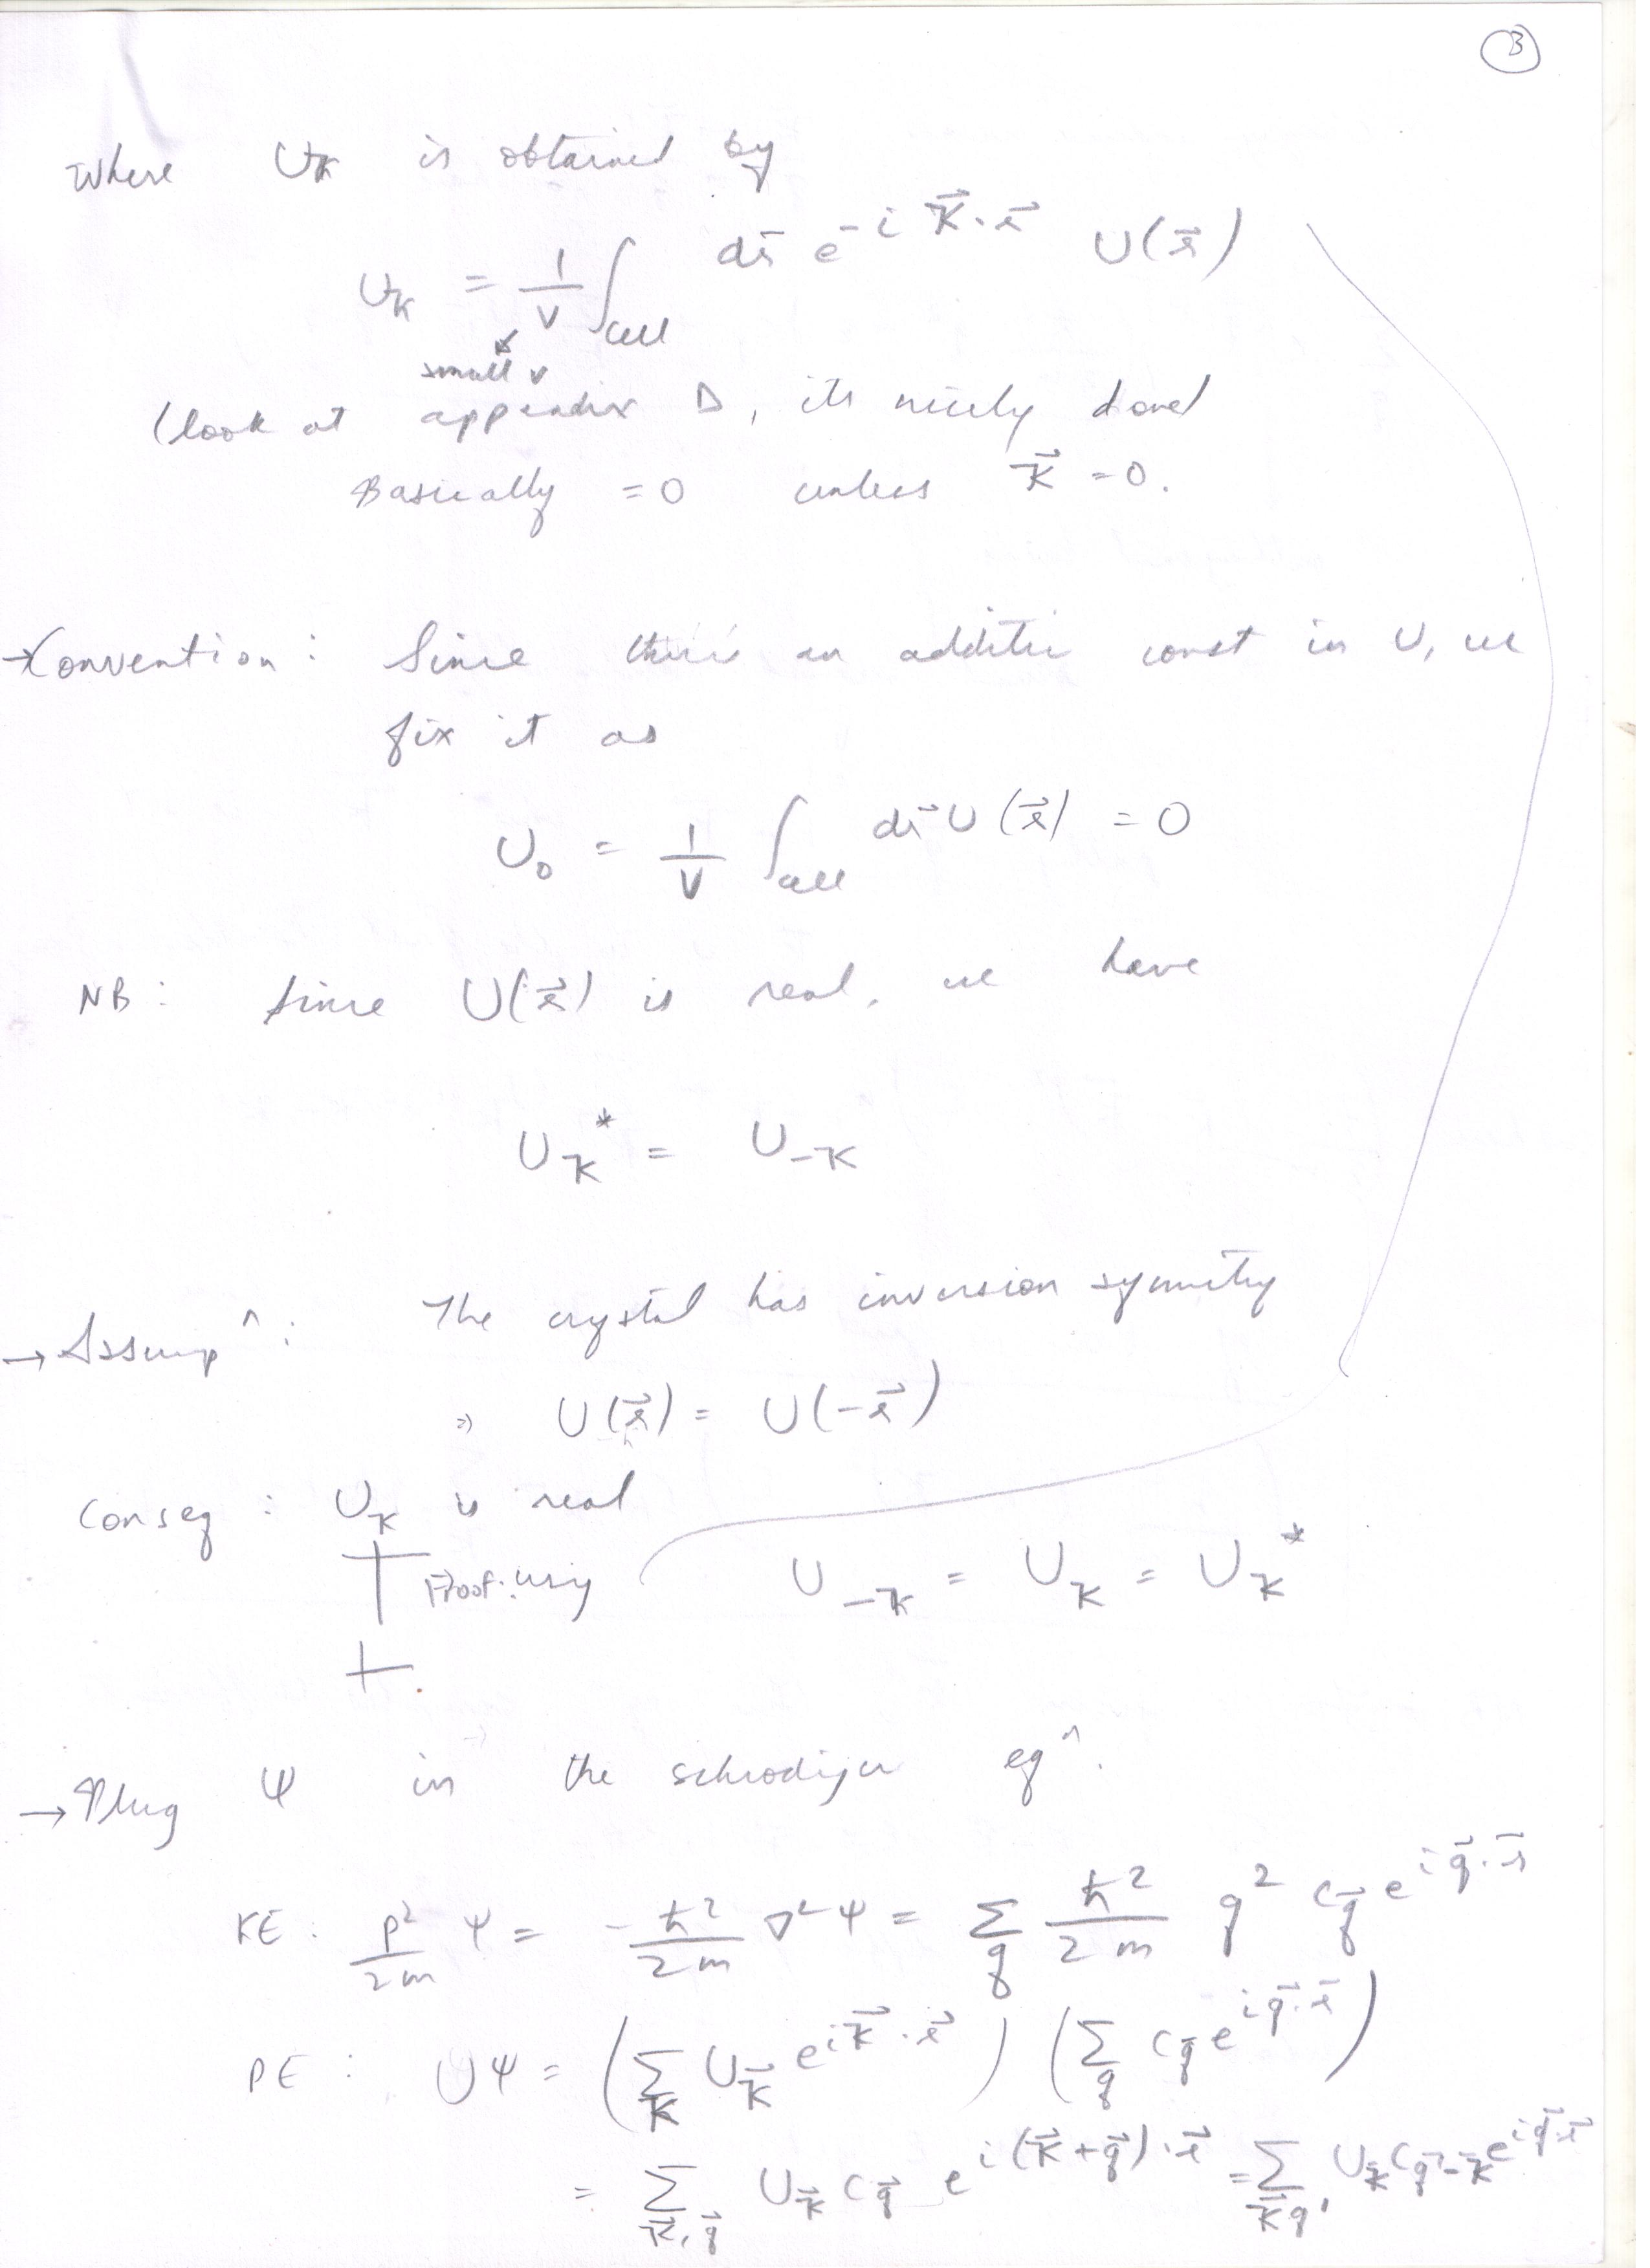 3
Where U_K is obtained by
U_K = 1/v ∫_cell dr⃗ e^{-i K⃗·r⃗} U(r⃗)
small v
(look at appendix D, its nicely done)
Basically = 0 unless K⃗ = 0.
→ Convention : Since there's an additive const in U, we
fix it as
U_0 = 1/v ∫_cell dr⃗ U(r⃗) = 0
NB : Since U(r⃗) is real, we have
U_K^* = U_{-K}
→ Assump^n : The crystal has inversion symmetry
⇒ U(r⃗) = U(-r⃗)
Conseq : U_K is real
Proof: using U_{-K} = U_K = U_K^*
→ Plug ψ in the schrodiger eq^n.
KE : p²/2m ψ = -ℏ²/2m ∇²ψ = Σ_q ℏ²/2m q² c_q⃗ e^{i q⃗·r⃗}
PE : Uψ = (Σ_K U_K⃗ e^{i K⃗·r⃗}) (Σ_q c_q⃗ e^{i q⃗·r⃗})
= Σ_{K⃗,q⃗} U_K⃗ c_q⃗ e^{i(K⃗+q⃗)·r⃗} = Σ_{K⃗q'} U_K⃗ c_{q⃗'-K⃗} e^{i q⃗'·r⃗}